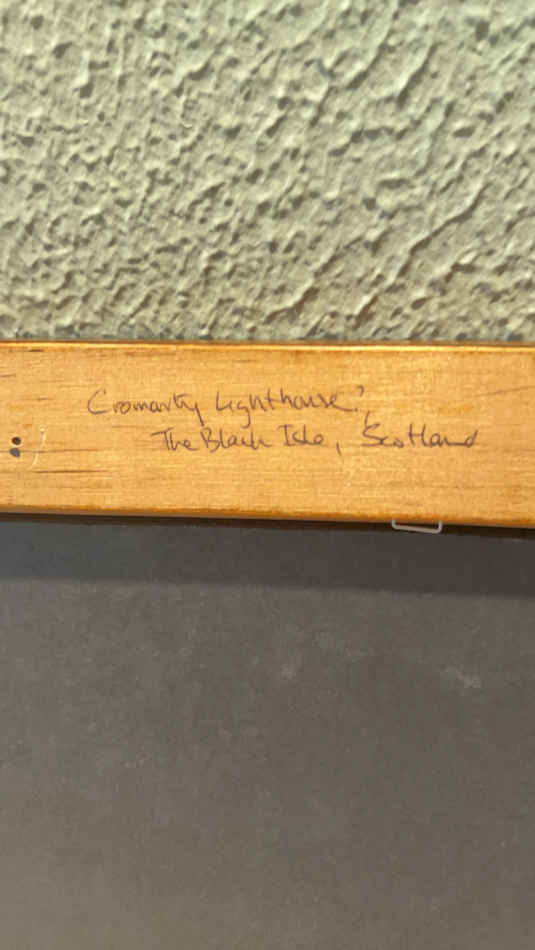 Cromarty Lighthouse?,
The Black Isle, Scotland